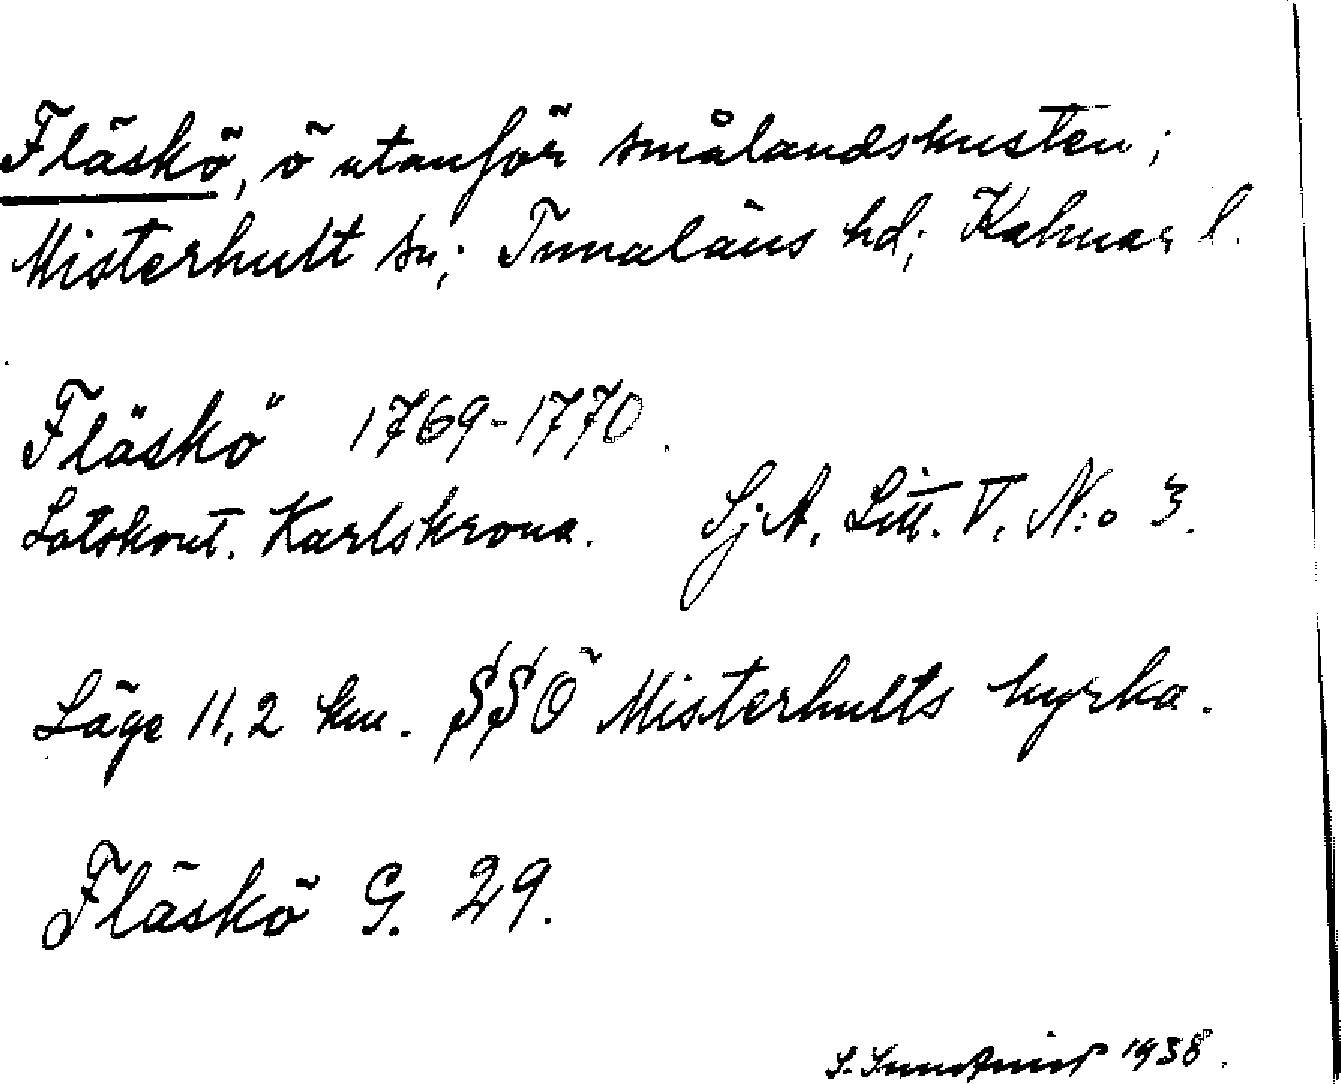 Fläskö, ö utanför smålandskusten;
Misterhult sn; Tunaläns hd; Kalmar l.
Fläskö 1769-1770.
Lotskont. Karlskrona. Sj.A. Litt. V. N:o 3.
Läge 11,2 km. SSÖ Misterhults kyrka.
Fläskö G. 29.
S. 1938.